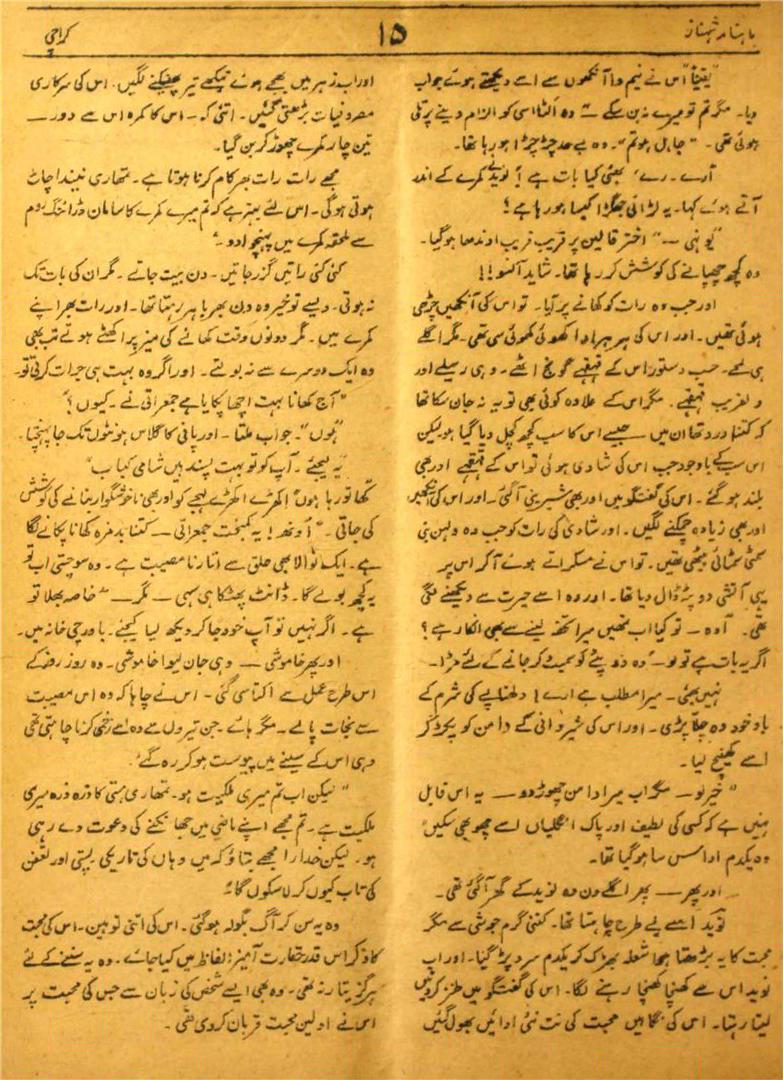 ماہنامہ شہناز
۱۵
کراچی
"یقیناً" اس نے نیم وا آنکھوں سے اسے دیکھتے ہوئے جواب
دیا۔ مگر تم تو میرے نہ بن سکے — وہ الٹا اسی کو الزام دینے پر تلی
ہوئی تھی۔ "جاہل ہو تم"۔ وہ بے حد چڑچڑا ہو رہا تھا۔
آرے۔ رے، بھئی کیا بات ہے؟ نوید نے کمرے کے اندر
آتے ہوئے کہا۔ یہ لڑائی جھگڑا کیسا ہو رہا ہے؟
"یونہی —" اختر قالین پر قریب قریب اوندھا ہو گیا۔
وہ کچھ چھپانے کی کوشش کر رہا تھا۔ شاید آنسو!!
اور جب وہ رات کو کھانے پر آیا۔ تو اس کی آنکھیں چڑھی
ہوئی تھیں۔ اور اس کی ہر ہر ادا کھوئی کھوئی سی تھی۔ مگر اگلے
ہی لمحے۔ حسب دستور اس کے قہقہے گونج اٹھے۔ وہی رسیلے اور
دلفریب قہقہے۔ مگر اس کے علاوہ کوئی بھی تو یہ نہ جان سکا تھا
کہ کتنا درد تھا ان میں — جیسے اس کا سب کچھ کچل دیا گیا ہو لیکن
اس سب کے باوجود جب اس کی شادی ہوئی تو اس کے قہقہے اور بھی
بلند ہو گئے۔ اس کی گفتگو میں اور بھی شیرینی آ گئی۔ اور اس کی آنکھیں
اور بھی زیادہ چمکنے لگیں۔ اور شادی کی رات کو جب وہ دلہن بنی
سمٹی سمٹائی بیٹھی تھی۔ تو اس نے مسکراتے ہوئے آ کر اس پر
یہی آتشی دوپٹہ ڈال دیا تھا۔ اور وہ اسے حیرت سے دیکھنے لگی
تھی۔ آہ — تو کیا اب تمہیں میرا تحفہ لینے سے بھی انکار ہے؟
اگر یہ بات ہے تو لو — وہ دوپٹے کو سمیٹ کر جانے کے لئے مڑا۔
نہیں بھئی۔ میرا مطلب ہے ارے! دلہناپے کی شرم کے
باوجود وہ چلا پڑی۔ اور اس کی شیروانی کے دامن کو پکڑ کر
اسے کھینچ لیا۔
"خیر لو — مگر اب میرا دامن چھوڑ دو — یہ اس قابل
نہیں ہے کہ کسی کی لطیف اور پاک انگلیاں اسے چھو بھی سکیں"
وہ یکدم اداس سا ہو گیا تھا۔
اور پھر — پھر اگلے دن وہ نوید کے گھر آ گئی تھی۔
نوید اسے بے طرح چاہتا تھا۔ کتنی گرم جوشی سے مگر
محبت کا یہ بڑھتا ہوا شعلہ بھڑک کر یکدم سرد پڑ گیا۔ اور اب
نوید اس سے کھنچا کھنچا رہنے لگا۔ اس کی گفتگو میں طنز کروٹیں
لیتا رہتا۔ اس کی نگاہیں محبت کی نت نئی ادائیں بھول گئیں
اور اب زہر میں بجھے ہوئے تیکھے تیر پھینکنے لگیں۔ اس کی سرکاری
مصروفیات بڑھتی گئیں۔ اتنی کہ — اس کا کمرہ اس سے دور —
تین چار کمرے چھوڑ کر بن گیا۔
مجھے رات رات بھر کام کرنا ہوتا ہے۔ تمہاری نیند اچاٹ
ہوتی ہو گی۔ اس لئے بہتر ہے کہ تم میرے کمرے کا سامان ڈرائنگ روم
سے ملحقہ کمرے میں پہنچوا دو۔"
کئی کئی راتیں گزر جاتیں۔ دن بیت جاتے۔ مگر ان کی بات تک
نہ ہوتی۔ ویسے تو خیر وہ دن بھر باہر رہتا تھا۔ اور رات بھر اپنے
کمرے میں۔ مگر دونوں وقت کھانے کی میز پر اکٹھے ہوتے تب بھی
وہ ایک دوسرے سے نہ بولتے۔ اور اگر وہ بہت ہی جرات کرتی تو۔
"آج کھانا بہت اچھا پکایا ہے جمعراتی نے۔ کیوں؟"
"ہوں"۔ جواب ملتا۔ اور پانی کا گلاس ہونٹوں تک جا پہنچتا۔
"یہ لیجئے۔ آپ کو تو بہت پسند ہیں شامی کباب"
کھا تو رہا ہوں" اکھڑے اکھڑے لہجے کو اور بھی ناخوشگوار بنانے کی کوشش
کی جاتی۔ "اونھ! یہ کمبخت جمعراتی — کتنا بدمزہ کھانا پکانے لگا
ہے۔ ایک نوالا بھی حلق سے اتارنا مصیبت ہے۔ وہ سوچتی اب تو
یہ کچھ بولے گا۔ ڈانٹ پھٹکار ہی سہی — مگر — "خاصہ بھلا تو
ہے۔ اگر نہیں تو آپ خود جا کر دیکھ لیا کیجئے۔ باورچی خانہ میں۔
اور پھر خاموشی — وہی جان لیوا خاموشی۔ وہ روز روز کے
اس طرح عمل سے اکتا سی گئی۔ اس نے چاہا کہ وہ اس مصیبت
سے نجات پا لے۔ مگر ہائے۔ جن تیروں سے وہ اسے زخمی کرنا چاہتی تھی
وہی اس کے سینے میں پیوست ہو کر رہ گئے۔
"لیکن اب تم میری ملکیت ہو۔ تمہاری ہستی کا ذرہ ذرہ میری
ملکیت ہے۔ تم مجھے اپنے ماضی میں جھانکنے کی دعوت دے رہی
ہو۔ لیکن خدارا مجھے بتاؤ کہ میں وہاں کی تاریکی پستی اور تعفن
کی تاب کیوں کر لا سکوں گا؟"
وہ یہ سن کر آگ بگولہ ہو گئی۔ اس کی اتنی توہین۔ اس کی محبت
کا ذکر اس قدر حقارت آمیز الفاظ میں کیا جائے۔ وہ یہ سننے کے لئے
ہرگز تیار نہ تھی۔ وہ بھی ایسے شخص کی زبان سے جس کی محبت پر
اس نے اولین محبت قربان کر دی تھی۔